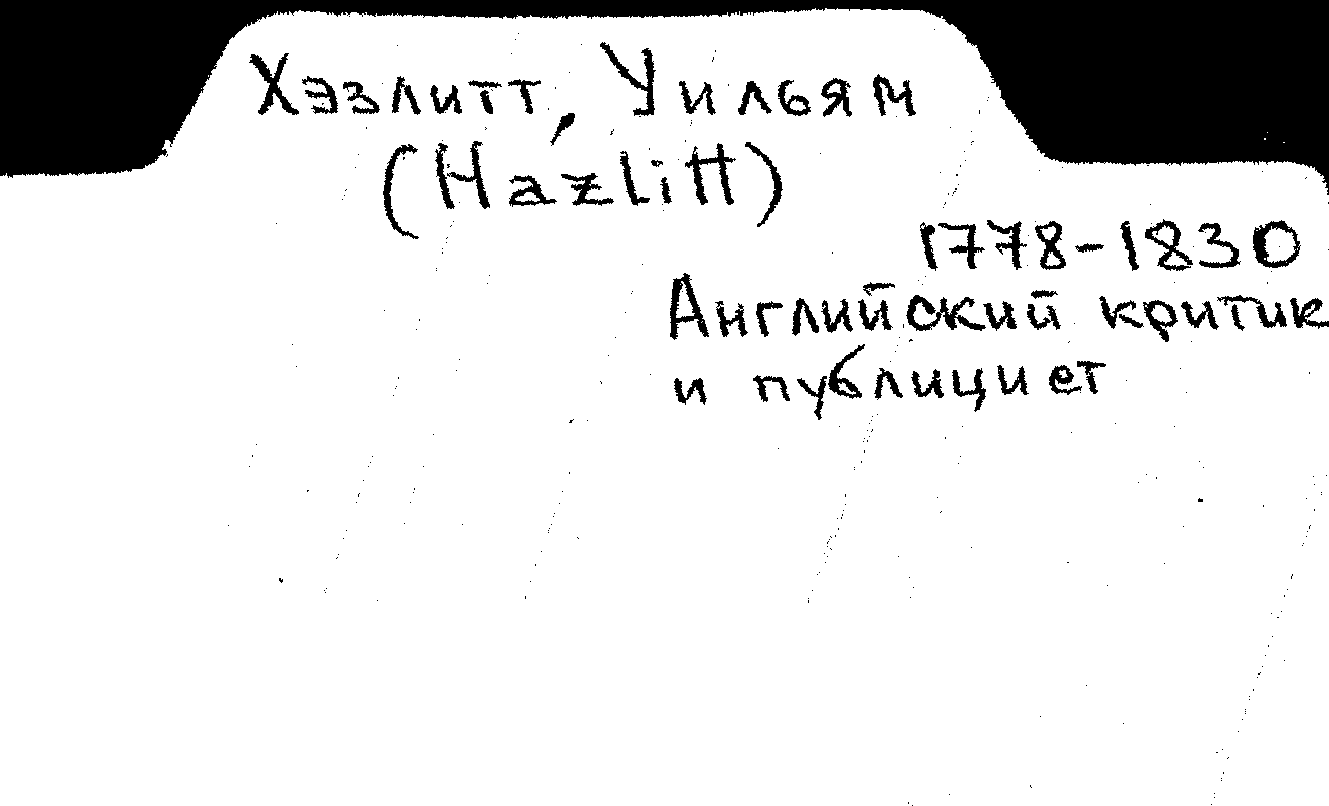 Хэзлитт, Уильям
(Hazlitt)
1778-1830
Английский критик
и публицист